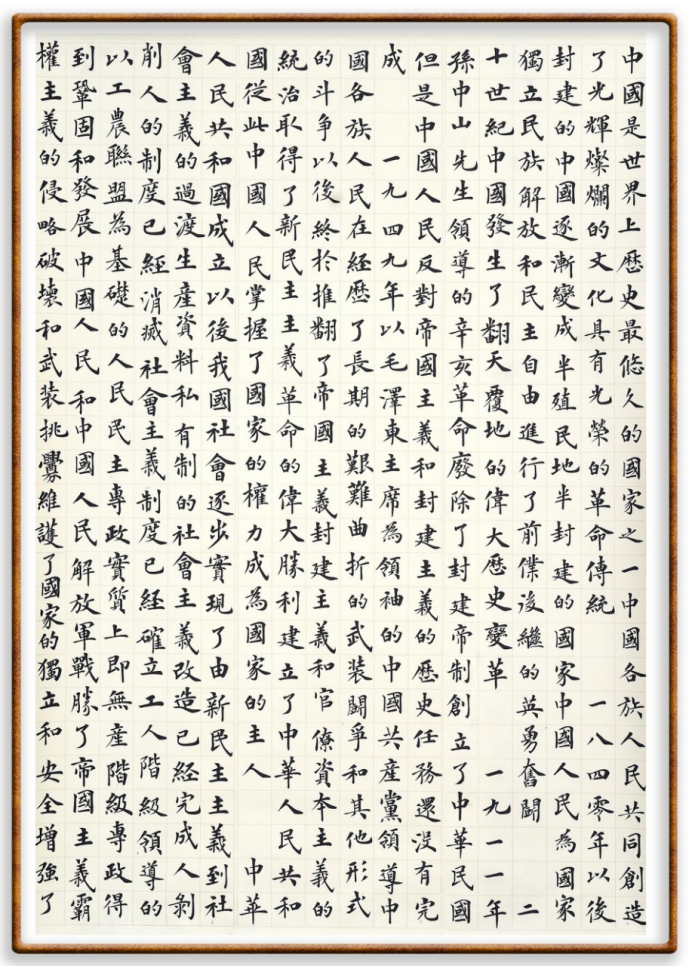 中國是世界上歷史最悠久的國家之一中國各族人民共同創造
了光輝燦爛的文化具有光榮的革命傳統　一八四零年以後
封建的中國逐漸變成半殖民地半封建的國家中國人民為國家
獨立民族解放和民主自由進行了前僕後繼的英勇奮鬪　二
十世紀中國發生了翻天覆地的偉大歷史變革　一九一一年
孫中山先生領導的辛亥革命廢除了封建帝制創立了中華民國
但是中國人民反對帝國主義和封建主義的歷史任務還沒有完
成　一九四九年以毛澤東主席為領袖的中國共產黨領導中
國各族人民在經歷了長期的艱難曲折的武装鬪爭和其他形式
的斗争以後終於推翻了帝國主義封建主義和官僚資本主義的
統治取得了新民主主義革命的偉大勝利建立了中華人民共和
國從此中國人民掌握了國家的權力成為國家的主人　中華
人民共和國成立以後我國社會逐步實現了由新民主主義到社
會主義的過渡生產資料私有制的社會主義改造已經完成人剝
削人的制度已經消滅社會主義制度已經確立工人階級領導的
以工農聯盟為基礎的人民民主專政實質上即無產階級專政得
到鞏固和發展中國人民和中國人民解放軍戰勝了帝國主義霸
權主義的侵略破壞和武装挑釁維護了國家的獨立和安全增強了